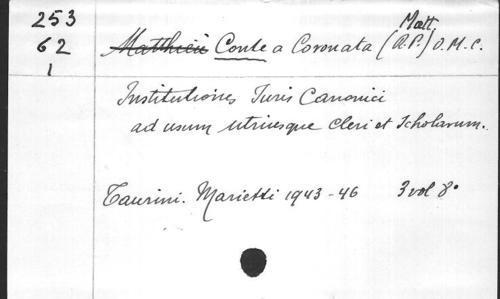 253
62
1
Matt.
Matthieu Conte a Coronata (R.P.) O.M.C.
Institutiones Juris Canonici
ad usum utriusque cleri et Scholarum.
Taurini. Marietti 1943-46 3 vol 8°